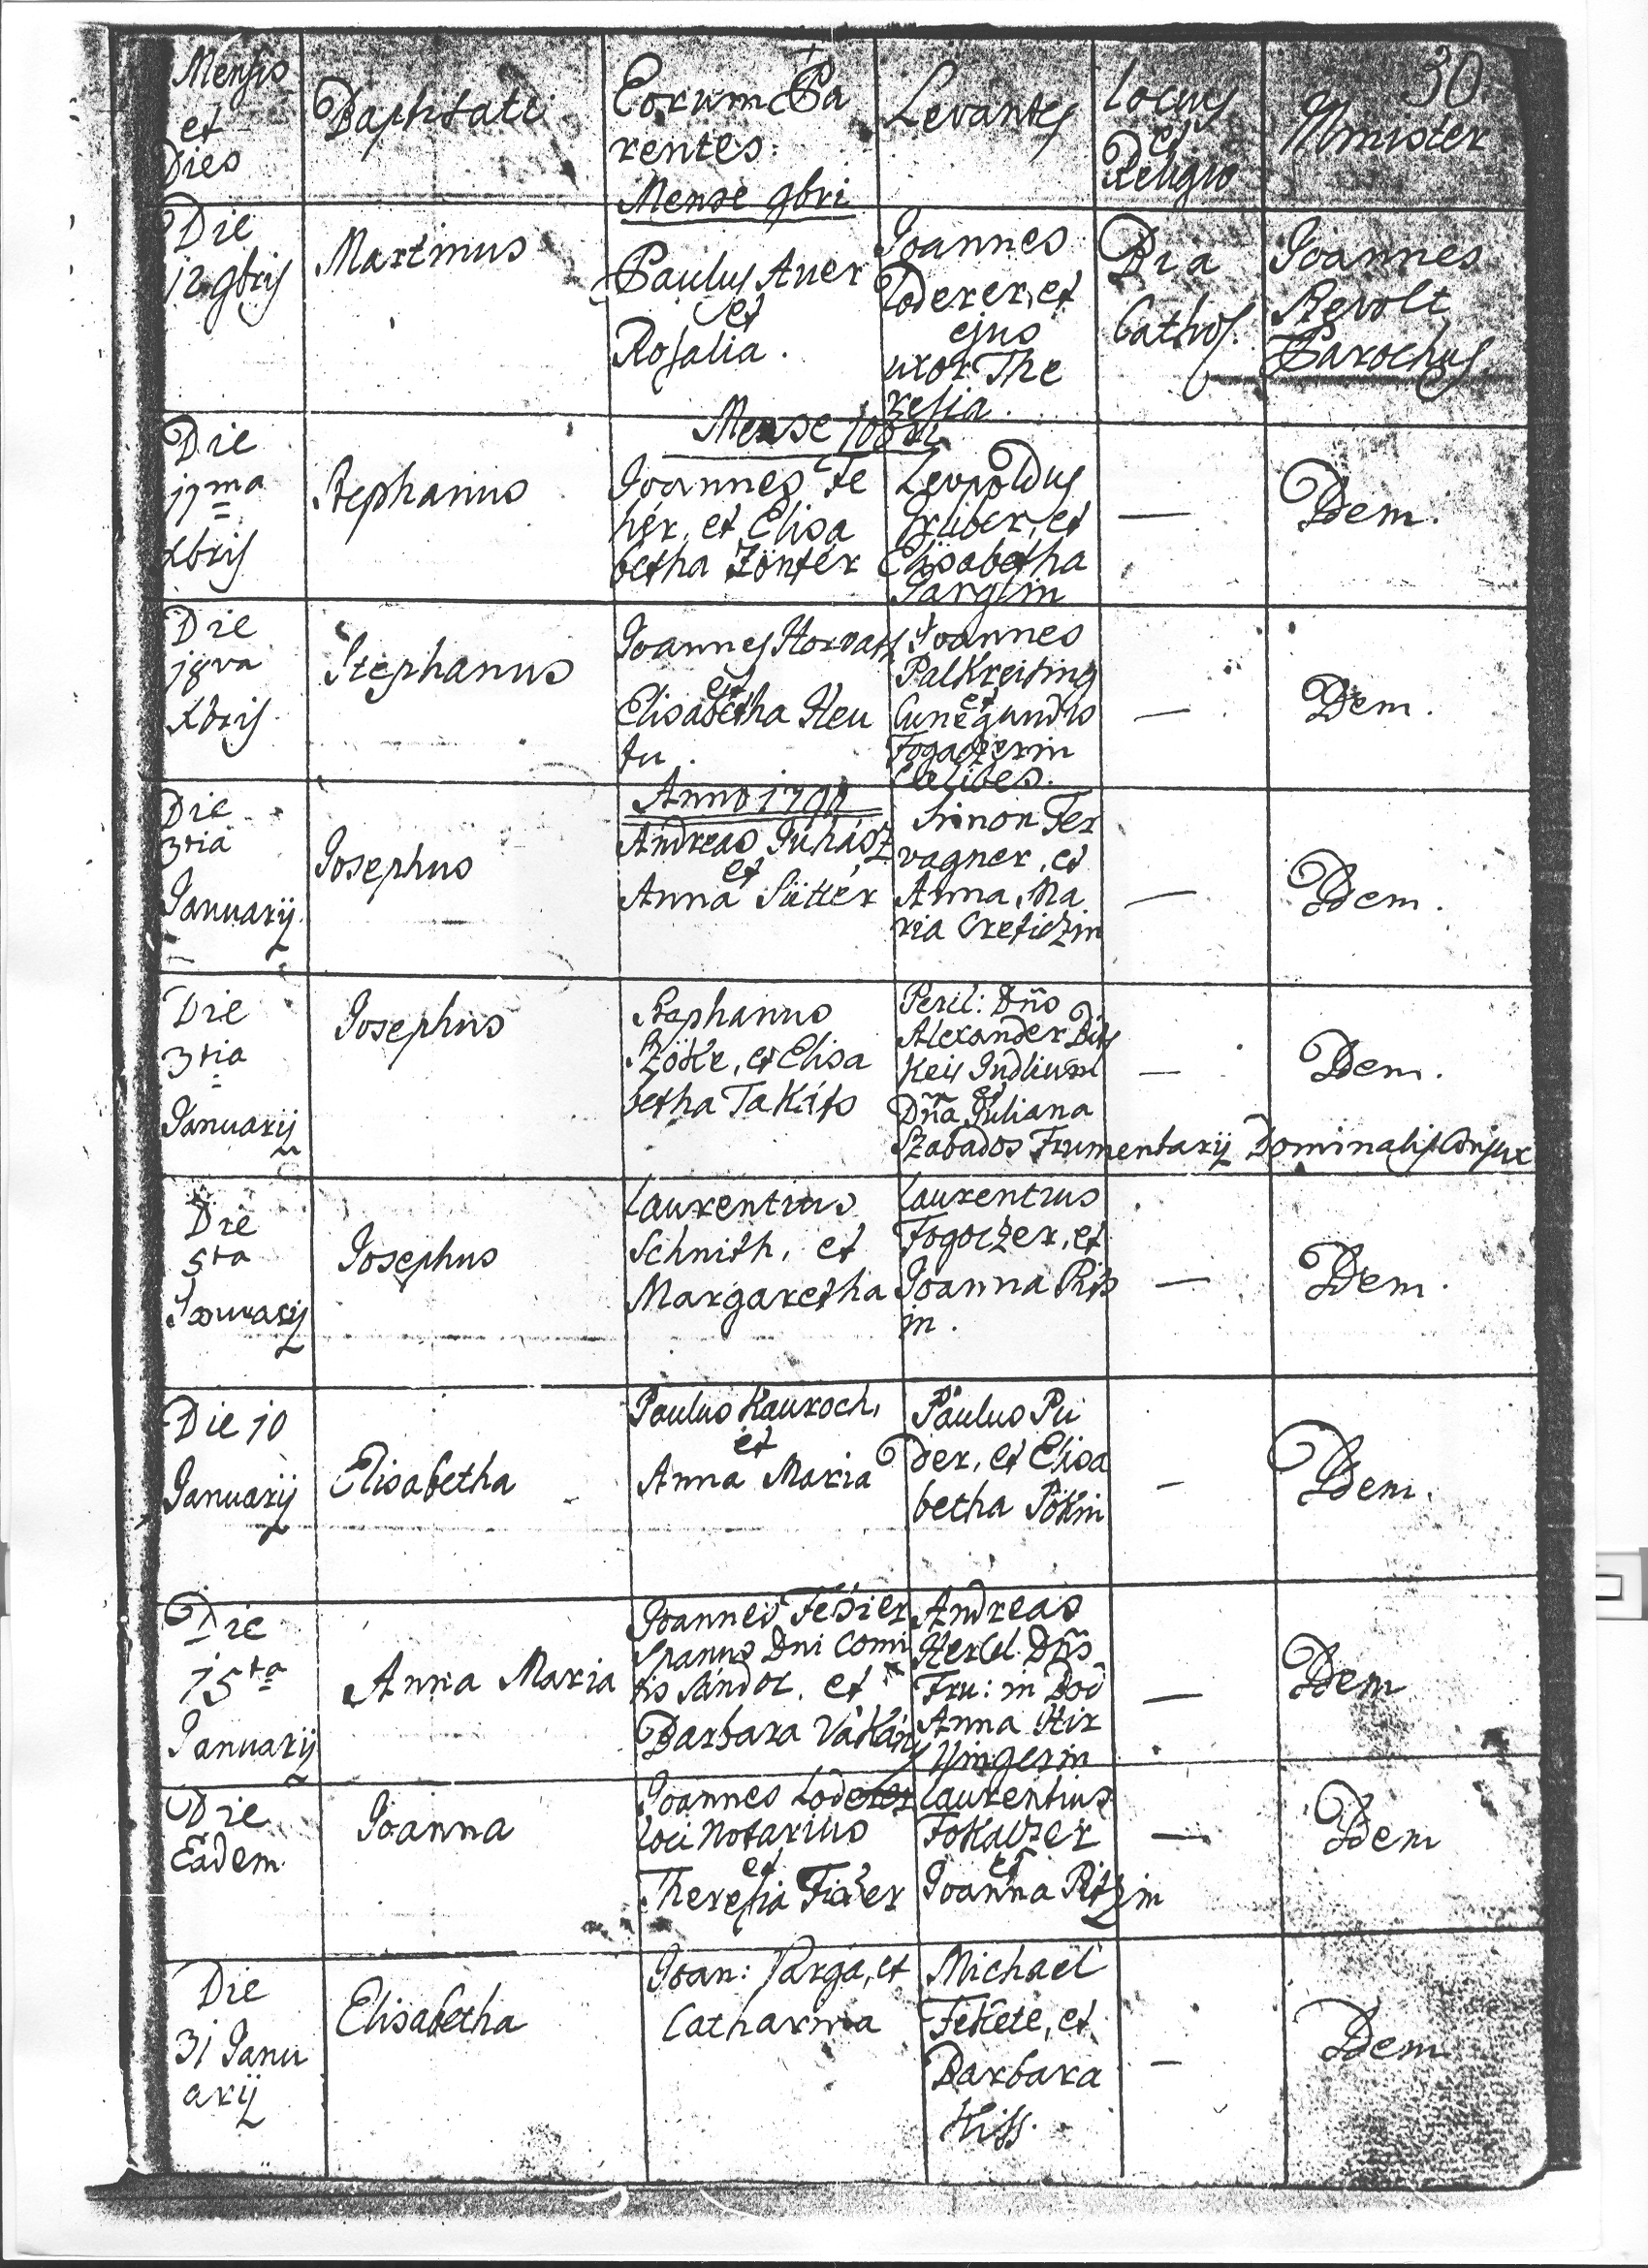 30
Mensis
et
Dies
Baptisati
Eorum Pa
rentes.
Levantes
Locus
et
Religio
Minister
Mense 9bri
Die
12 9bris
Martinus
Paulus Auer
et
Rosalia.
Joannes
Loderer, et
ejus
uxor The
resia.
Bia
Cathol.
Joannes
Revolt
Parochus
Mense 10bri
Die
17ma
Xbris
Stephanus
Joannes Fe
hér, et Elisa
betha Zönter
Leopoldus
Gruber, et
Elisabetha
Parglin
—
Idem.
Die
18va
Xbris
Stephanus
Joannes Horvath
et
Elisabetha Heu
tu.
Joannes
PalKreiting
et
Cunegundis
Fogaczerin
Caelibes.
—
Idem.
Anno 1791
Die
3tia
Januarij
Josephus
Andreas Juhász
et
Anna Sütter
Simon Fer
vagner, et
Anna Ma
ria Creticzin
—
Idem.
Die
3tia
Januarij
Josephus
Stephanus
Szöke, et Elisa
betha Takáts
Peril: Dño
Alexander
Keis Indlium
et
Dña Juliana
Szabados Frumentarij Dominalis Conjux
—
Idem.
Die
5ta
Januarij
Josephus
Laurentius
Schnith, et
Margaretha
Laurentius
Fogoczer, et
Joanna Rits
in.
—
Idem.
Die 10
Januarij
Elisabetha
Paulus Kauroch,
et
Anna Maria
Paulus Pu
der, et Elisa
betha Pökin
—
Idem.
Die
15ta
Januarij
Anna Maria
Joannes Fésier
Spanus Dni Comi
tis Sándor, et
Barbara Vakány
Andreas
Herlel Dñs
Fru: in Bod
Anna Hir
Vingerin
—
Idem
Die
Eadem
Joanna
Joannes Loderer
Loci Notarius
et
Theresia Fiézer
Laurentius
Fokaczer
et
Joanna Ritzin
—
Idem
Die
31 Janu
arij
Elisabetha
Joan: Varga, et
Catharina
Michael
Fekete, et
Barbara
Kiss.
—
Idem